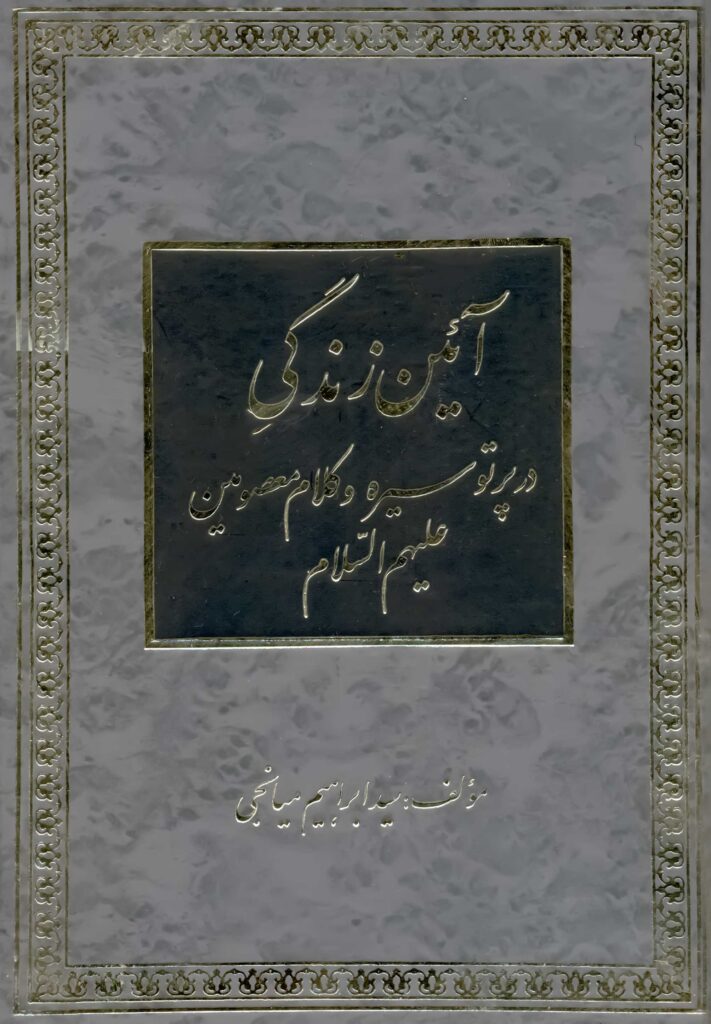 آئین زندگی
در پرتو سیره و کلام معصومین
علیهم السّلام
مؤلف: سید ابراهیم میانجی